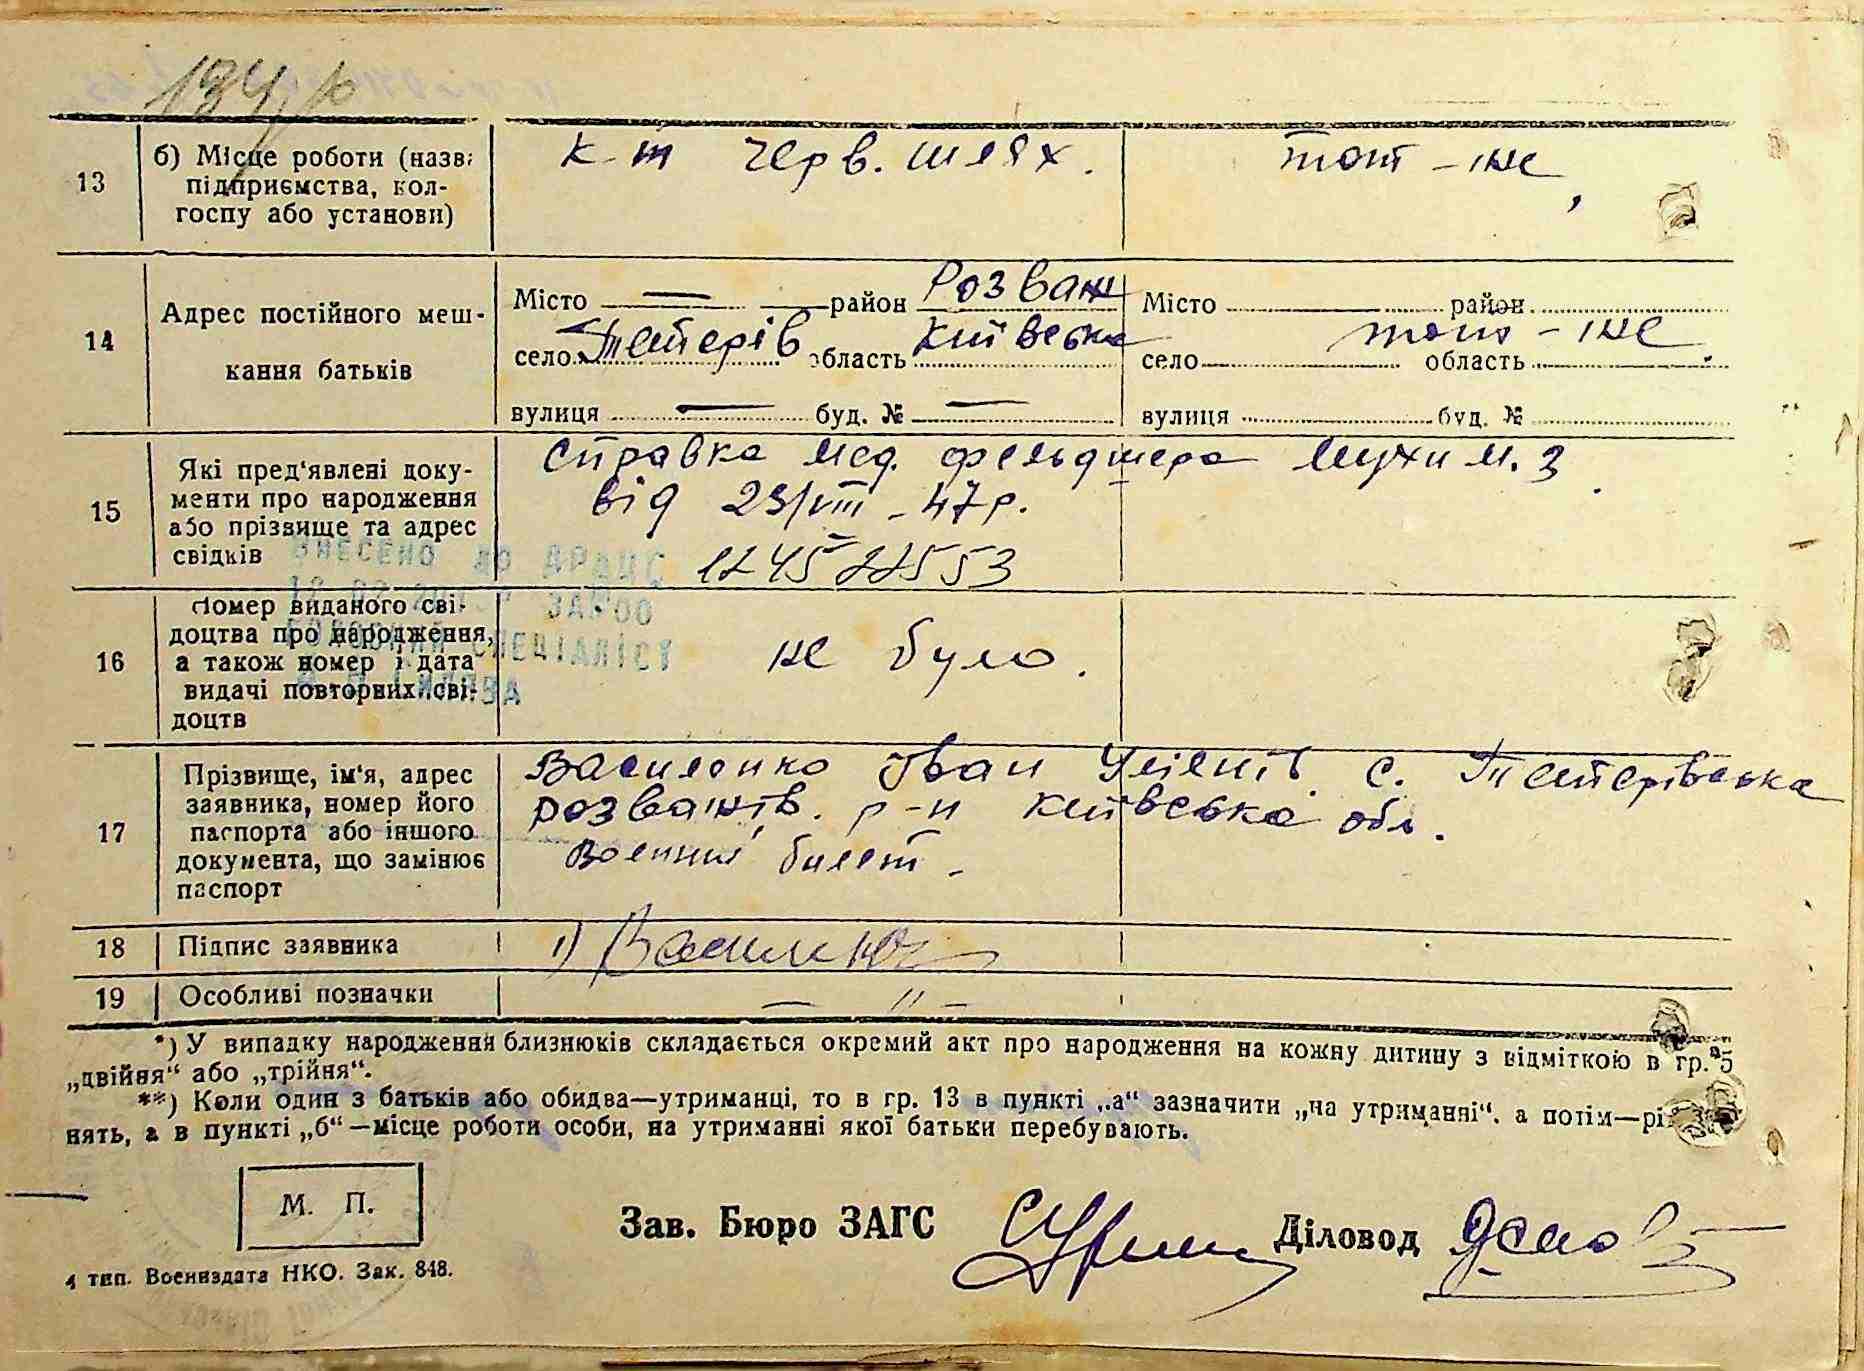 13
б) Місце роботи (назва
підприємства, кол-
госпу або установи)
к-т черв. шлях.
тот-же
14
Адрес постійного меш-
кання батьків
Місто — район Розваж
село Тетерів область Київська
вулиця — буд. № —
Місто район
тот-же
село область
вулиця буд. №
15
Які пред'явлені доку-
менти про народження
або прізвище та адрес
свідків
Справка мед. фельдшера Мухи М. З.
від 23/VIII-47р.
ВНЕСЕНО ДО ДРАЦС
СПЕЦІАЛІСТ
16
Номер виданого сві-
доцтва про народження,
а також номер і дата
видачі повторних сві-
доцтв
не було.
17
Прізвище, ім'я, адрес
заявника, номер його
паспорта або іншого
документа, що замінює
паспорт
Василенко Іван с. Тетерівська
Розважів. р-н Київська обл.
Военний билет.
18
Підпис заявника
1)
19
Особливі позначки
— " —
*) У випадку народження близнюків складається окремий акт про народження на кожну дитину з відміткою в гр. 5
„двійня“ або „трійня“.
**) Коли один з батьків або обидва—утриманці, то в гр. 13 в пункті „а“ зазначити „на утриманні“, а потім—рі
нять, а в пункті „б“—місце роботи особи, на утриманні якої батьки перебувають.
М. П.
Зав. Бюро ЗАГС
Діловод
4 тип. Воениздата НКО. Зак. 848.